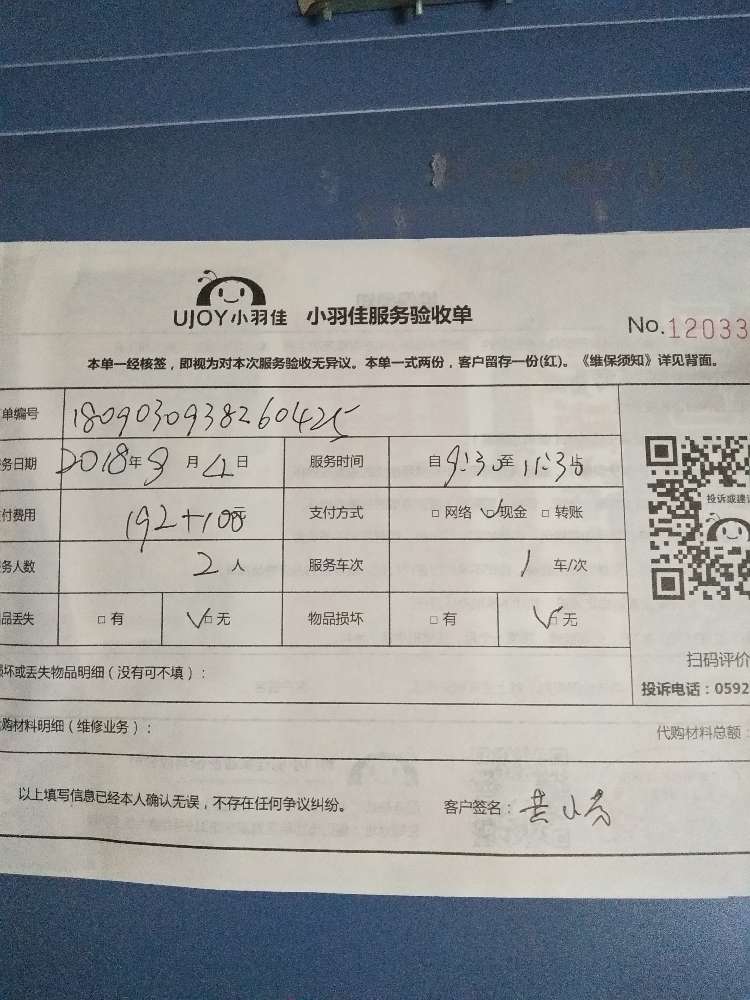 UJOY小羽佳 小羽佳服务验收单
No.12033
本单一经核签，即视为对本次服务验收无异议。本单一式两份，客户留存一份(红)。《维保须知》详见背面。
单编号 1809030938260425
务日期 2018年9月4日 服务时间 自9:30至11:30止
付费用 192+100元 支付方式 □网络 ✓现金 □转账
务人数 2人 服务车次 1车/次
品丢失 □有 ✓□无 物品损坏 □有 ✓□无
投诉或建议
扫码评价
损坏或丢失物品明细（没有可不填）：
投诉电话：0592
购材料明细（维修业务）：
代购材料总额：
以上填写信息已经本人确认无误，不存在任何争议纠纷。 客户签名：黄